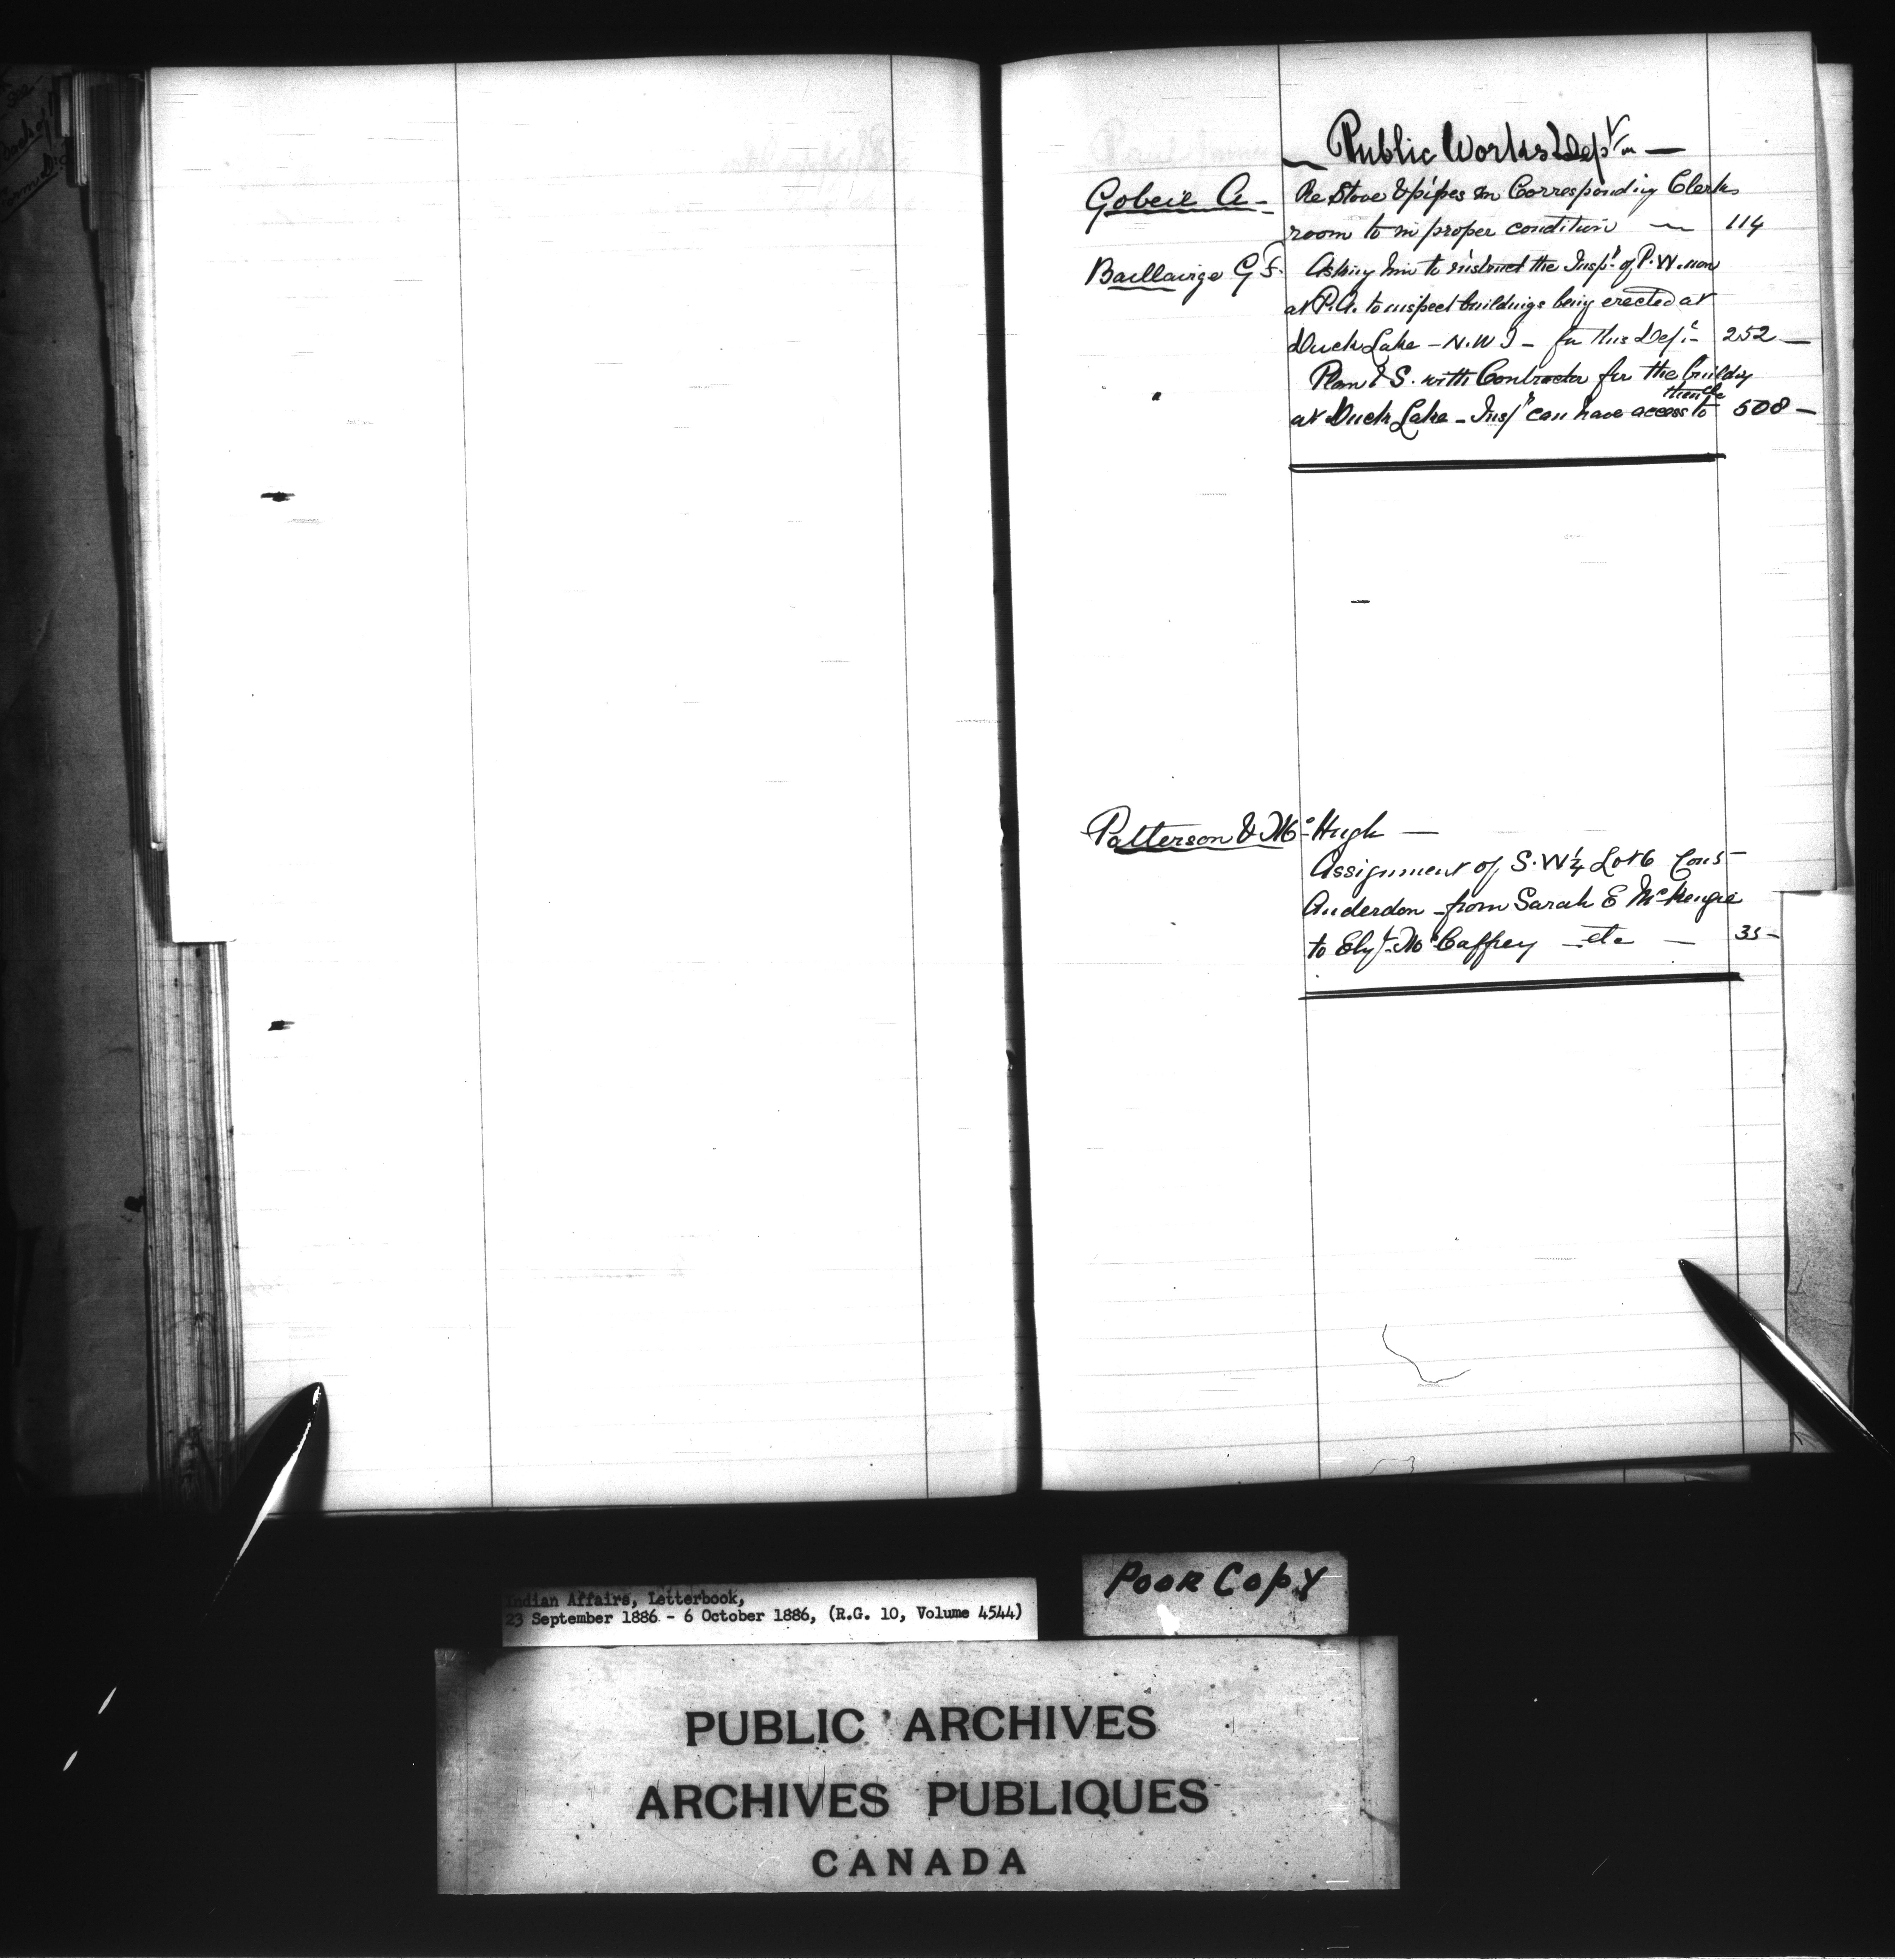 Public Works Dept —
Gobeil A - Re Stove & pipes in Corresponding Clerks
room to in proper condition — 114
Baillairge G F. Asking him to instruct the Inspr of P.W. now
at P.A. to inspect buildings being erected at
Duck Lake - N.W.T - for this Dept - 252 —
" Plan & S. with Contractor for the building
at Duck Lake - Inspr can have access to 508 —
Patterson & McHugh —
Assignment of S.W¼ Lot 6 Con 5 —
Anderdon - from Sarah E McKenzie
to Elizt McCaffrey - etc — 35 -
Indian Affairs, Letterbook,
23 September 1886 - 6 October 1886, (R.G. 10, Volume 4544)
Poor Copy
PUBLIC ARCHIVES
ARCHIVES PUBLIQUES
CANADA